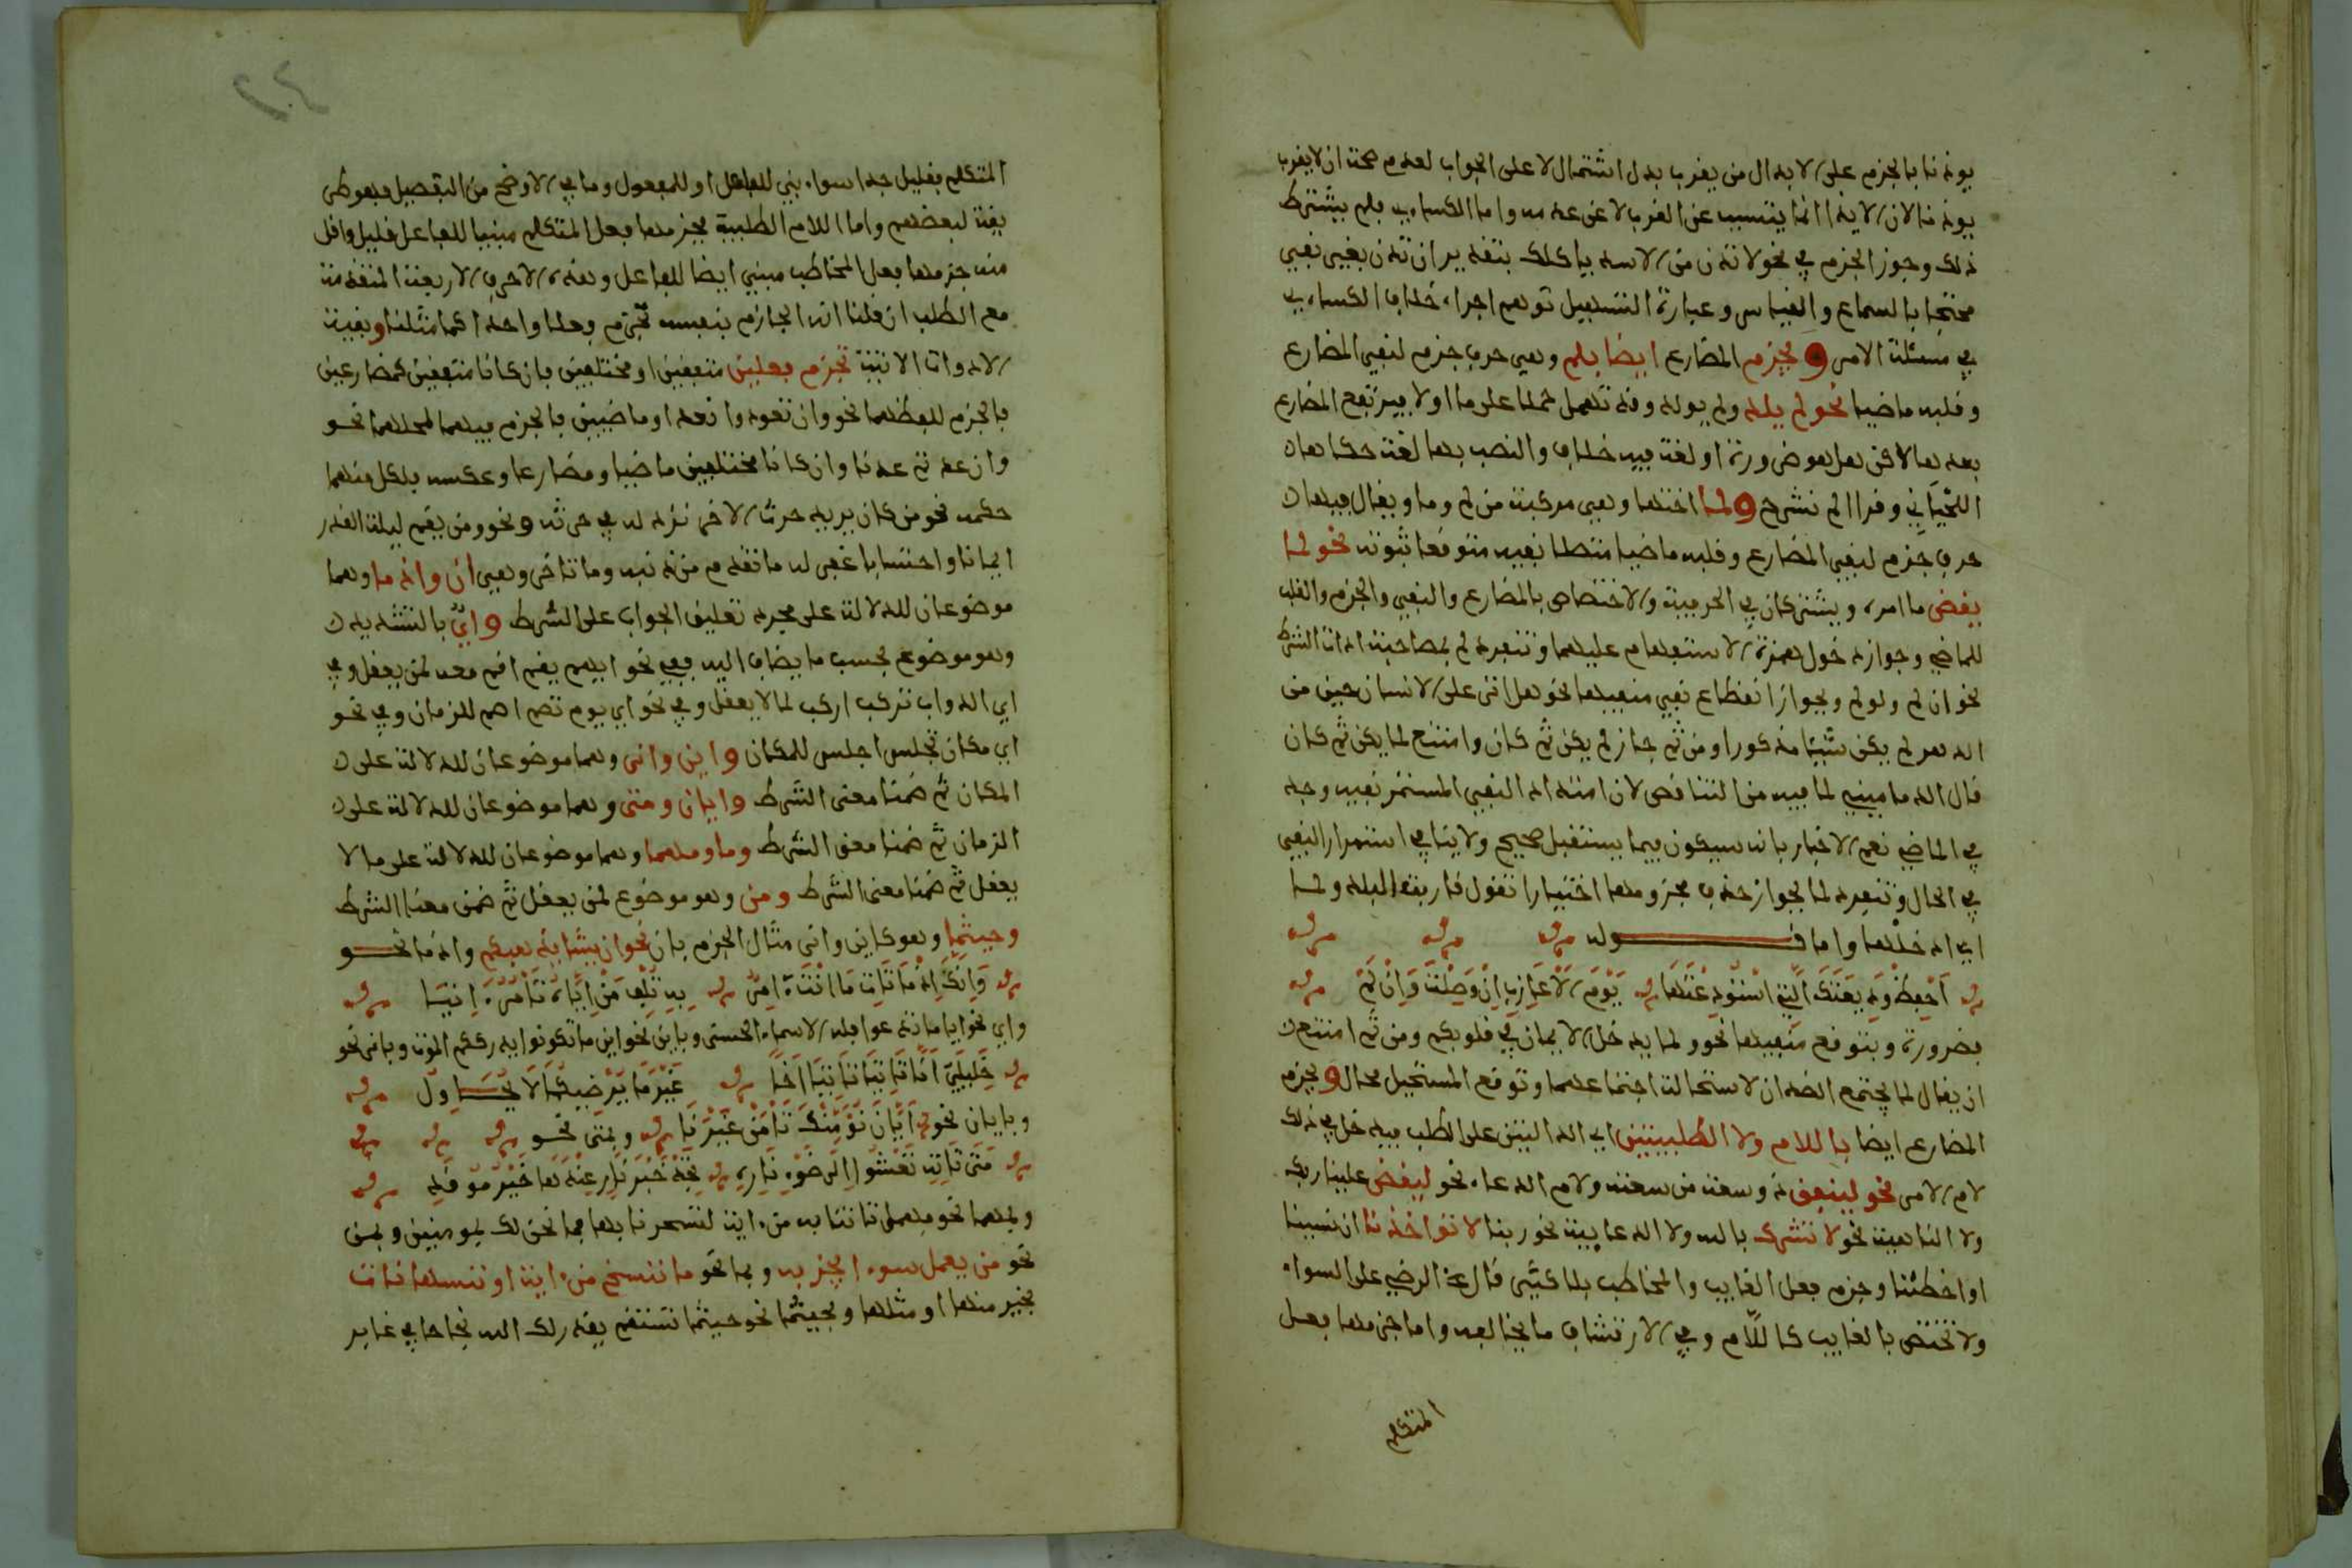 يوذنا بالجزم على الابدال من يقرب بدل اشتمال لا على الجواب لعدم صحة ان لا يقرب
يوذنا لان الايذا انما يتسبب عن القرب لا عن عدمه واما الكساءي فلم يشترط
ذلك وجوز الجزم في نحو لا تدن من الاسد ياكلك بتقدير ان تدن بغير نفي
محتجا بالسماع والقياس وعبارة التسهيل توهم اجراء خلاف الكساءي
في مسئلة الامر ويجزم المضارع ايضا بلم وهي حرف جزم لنفي المضارع
وقلبه ماضيا نحو لم يلد ولم يولد وقد تهمل حملا على ما او لا فيرتفع المضارع
بعدها لاكن هل هو ضرورة او لغة فيه خلاف والنصب بها لغة حكاها
اللحياني وقرا الم نشرح ولما اختها وهي مركبة من لم وما ويقال فيها
حرف جزم لنفي المضارع وقلبه ماضيا متصلا نفيه متوقعا ثبوته نحو لما
يقض ما امره ويشتركان في الحرفية والاختصاص بالمضارع والنفي والجزم والقلب
للماضي وجواز دخول همزة الاستفهام عليهما وتنفرد لم بمصاحبة اداة الشرط
نحو ان لم ولو لم وبجواز انقطاع نفي منفيها نحو هل اتى على الانسان حين من
الدهر لم يكن شيئا مذكورا ومن ثم جاز لم يكن ثم كان وامتنع لما يكن ثم كان
قال الدماميني لما فيه من التناقض لان امتداد النفي المستمر نفيه وجد
في الماضي نعم الاخبار بانه سيكون فيما يستقبل صحيح ولا ينافي استمرار النفي
في الحال وتنفرد لما بجواز حذف مجزومها اختيارا تقول قاربت البلد ولما
اي ادخلها واما قوله
احفظ وديعتك التي استودعتها يوم الاعازب ان وصلت وان لم
فضرورة وبتوقع منفيها نحو ولما يدخل الايمان في قلوبكم ومن ثم امتنع
ان يقال لما يجتمع الضدان لاستحالة اجتماعهما وتوقع المستحيل محال ويجزم
المضارع ايضا باللام ولا الطلبيتين اي الدالتين على الطلب فيدخل في ذلك
لام الامر نحو لينفق ذو سعة من سعته ولام الدعاء نحو ليقض علينا ربك
ولا الناهية نحو لا تشرك بالله ولا الدعايية نحو ربنا لا تواخذنا ان نسينا
او اخطئنا وجزم فعل الغايب والمخاطب بلا كثير قال الرضي على السواء
ولا تختص بالغايب كاللام وفي الارتشاف ما يخالفه واما جزمها فعل
المتكلم
المتكلم فقليل جدا سواء بني للفاعل او للمفعول وما في الاوضح من التفصيل فهو طريقة
لبعضهم واما اللام الطلبية فجزمها فعل المتكلم مبنيا للفاعل قليل واقل
منه جزمها فعل المخاطب مبني ايضا للفاعل وهذه الاحرف الاربعة المتقدمة
مع الطلب ان قلنا انه الجازم بنفسه تجزم فعلا واحدا كما مثلنا وبقية
الادوات الاتية تجزم فعلين متفقين او مختلفين فان كانا متفقين كمضارعين
فالجزم للفظهما نحو وان تعودوا نعد او ماضيين فالجزم فيهما لمحلهما نحو
وان عدتم عدنا وان كانا مختلفين ماضيا ومضارعا وعكسه فلكل منهما
حكمه نحو من كان يريد حرث الاخرة نزد له في حرثه ونحو ومن يقم ليلة القدر
ايمانا واحتسابا غفر له ما تقدم من ذنبه وما تاخر وهي ان واذ ما وهما
موضوعان للدلالة على مجرد تعليق الجواب على الشرط واي بالتشديد
وهو موضوع بحسب ما يضاف اليه فهي نحو ايهم يقم اقم معه لمن يعقل وفي
اي الدواب تركب اركب لما لا يعقل وفي نحو اي يوم تصم اصم للزمان وفي نحو
اي مكان تجلس اجلس للمكان واين وانى وهما موضوعان للدلالة على
المكان ثم ضمنا معنى الشرط وايان ومتى وهما موضوعان للدلالة على
الزمان ثم ضمنا معنى الشرط وما ومهما وهما موضوعان للدلالة على ما لا
يعقل ثم ضمنا معنى الشرط ومن وهو موضوع لمن يعقل ثم ضمن معنى الشرط
وحيثما وهو كاين وانى مثال الجزم بان نحو ان يشا يذهبكم واذ ما نحو
وانك اذ ما تات ما انت امر به تلف من اياه تامر اتيا
واي نحو ايا ما تدعوا فله الاسماء الحسنى وباين نحو اين ما تكونوا يدرككم الموت وبانى نحو
خليلي انى تاتياني تاتيا اخا غير ما يرضيكما لا يحاول
وبايان نحو ايان نؤمنك تامن غيرنا وبمتى نحو
متى تاته تعشوا الى ضوء ناره تجد خير نار عندها خير موقد
وبمهما نحو مهما تاتنا به من ءاية لتسحرنا بها فما نحن لك بمومنين وبمن
نحو من يعمل سوءا يجز به وبما نحو ما ننسخ من ءاية او ننسها نات
بخير منها او مثلها وبحيثما نحو حيثما تستقم يقدر لك الله نجاحا في غابر